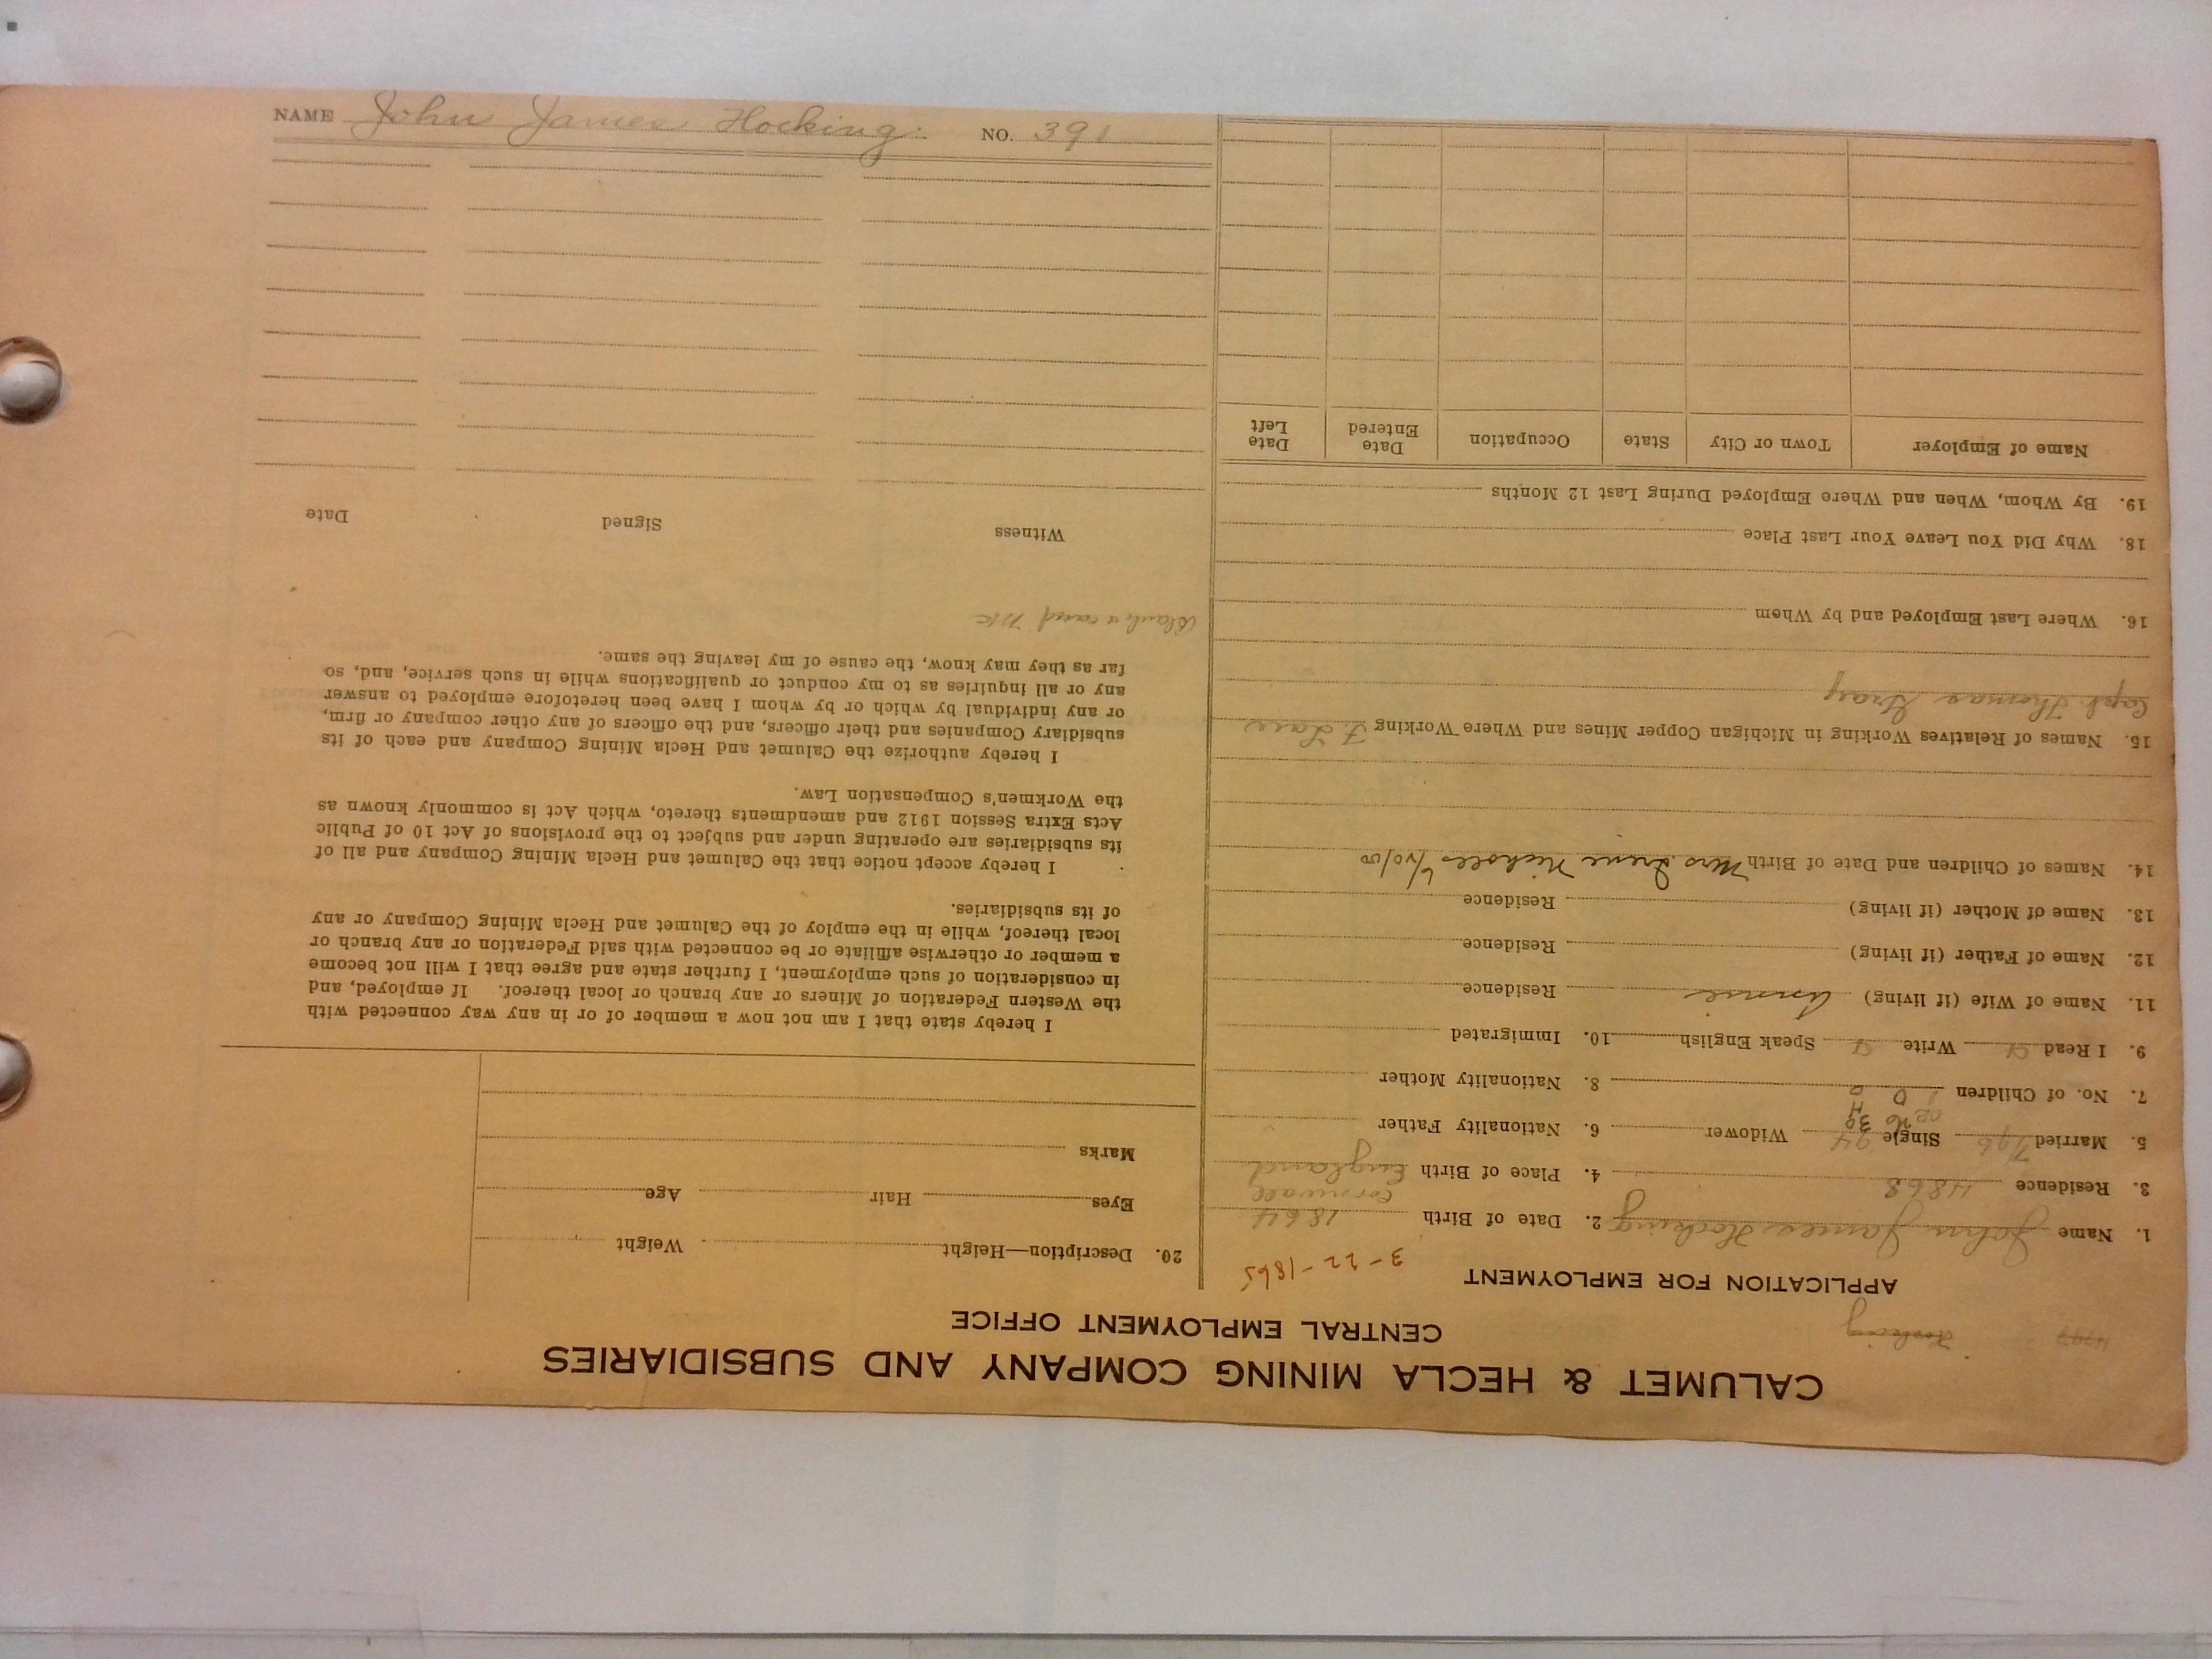 CALUMET & HECLA MINING COMPANY AND SUBSIDIARIES
CENTRAL EMPLOYMENT OFFICE
APPLICATION FOR EMPLOYMENT
3-22-1865
1. Name John James Hocking 2. Date of Birth 1864
Cornwall
3. Residence 4868 4. Place of Birth England
5. Married Single Widower 6. Nationality Father
7. No. of Children 8. Nationality Mother
9. I Read Write Speak English 10. Immigrated
11. Name of Wife (if living) Annie Residence
12. Name of Father (if living) Residence
13. Name of Mother (if living) Residence
14. Names of Children and Date of Birth Mrs Irene Nicholls 6/20/00
15. Names of Relatives Working in Michigan Copper Mines and Where Working
Capt. Thomas Gray
16. Where Last Employed and by Whom
18. Why Did You Leave Your Last Place
19. By Whom, When and Where Employed During Last 12 Months
Name of Employer Town or City State Occupation Date Entered Date Left
20. Description—Height Weight
Eyes Hair Age
Marks
I hereby state that I am not now a member of or in any way connected with
the Western Federation of Miners or any branch or local thereof. If employed, and
in consideration of such employment, I further state and agree that I will not become
a member or otherwise affiliate or be connected with said Federation or any branch or
local thereof, while in the employ of the Calumet and Hecla Mining Company or any
of its subsidiaries.
I hereby accept notice that the Calumet and Hecla Mining Company and all of
its subsidiaries are operating under and subject to the provisions of Act 10 of Public
Acts Extra Session 1912 and amendments thereto, which Act is commonly known as
the Workmen's Compensation Law.
I hereby authorize the Calumet and Hecla Mining Company and each of its
subsidiary Companies and their officers, and the officers of any other company or firm,
or any individual by which or by whom I have been heretofore employed to answer
any or all inquiries as to my conduct or qualifications while in such service, and, so
far as they may know, the cause of my leaving the same.
Witness Signed Date
NAME John James Hocking NO. 391